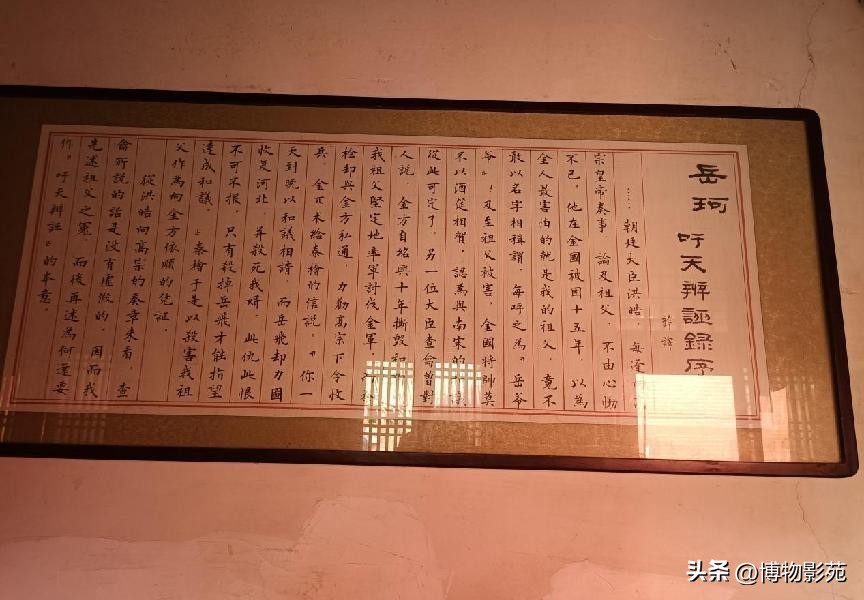 岳珂 吁天辨誣錄序
節譯
…… 朝廷大臣洪皓，每逢
宗皇帝奏事，論及祖父，不由心慟
不已，他在金國被囚十五年，以為
金人最害怕的就是我的祖父，竟不
敢以名字相稱謂，每呼之為“岳爺
爺”，及至祖父被害，金國將帥莫
不以酒酌相賀，認為與南宋的
從此可定了，另一位大臣查侖曾對
人說，金方自毀與十年撕毀和
我祖父堅定地率軍討伐金軍，
檜却與金方私通，力勸高宗下令收
兵，金兀术給秦檜的信說，“你一
天到晚以和議相請，而岳飛却力圖
收复河北，并殺死我婿，此仇此恨
不可不报，只有殺掉岳飛才能指望
達成和議。”秦檜于是以殺害我祖
父作為向金方依順的凭証。
從洪皓向高宗的奏章來看，查
侖所說的話是沒有虛假的，因而我
先述祖父之冤，而後再述為何還要
作“吁天辨誣”的本意。
头条 @博物影苑